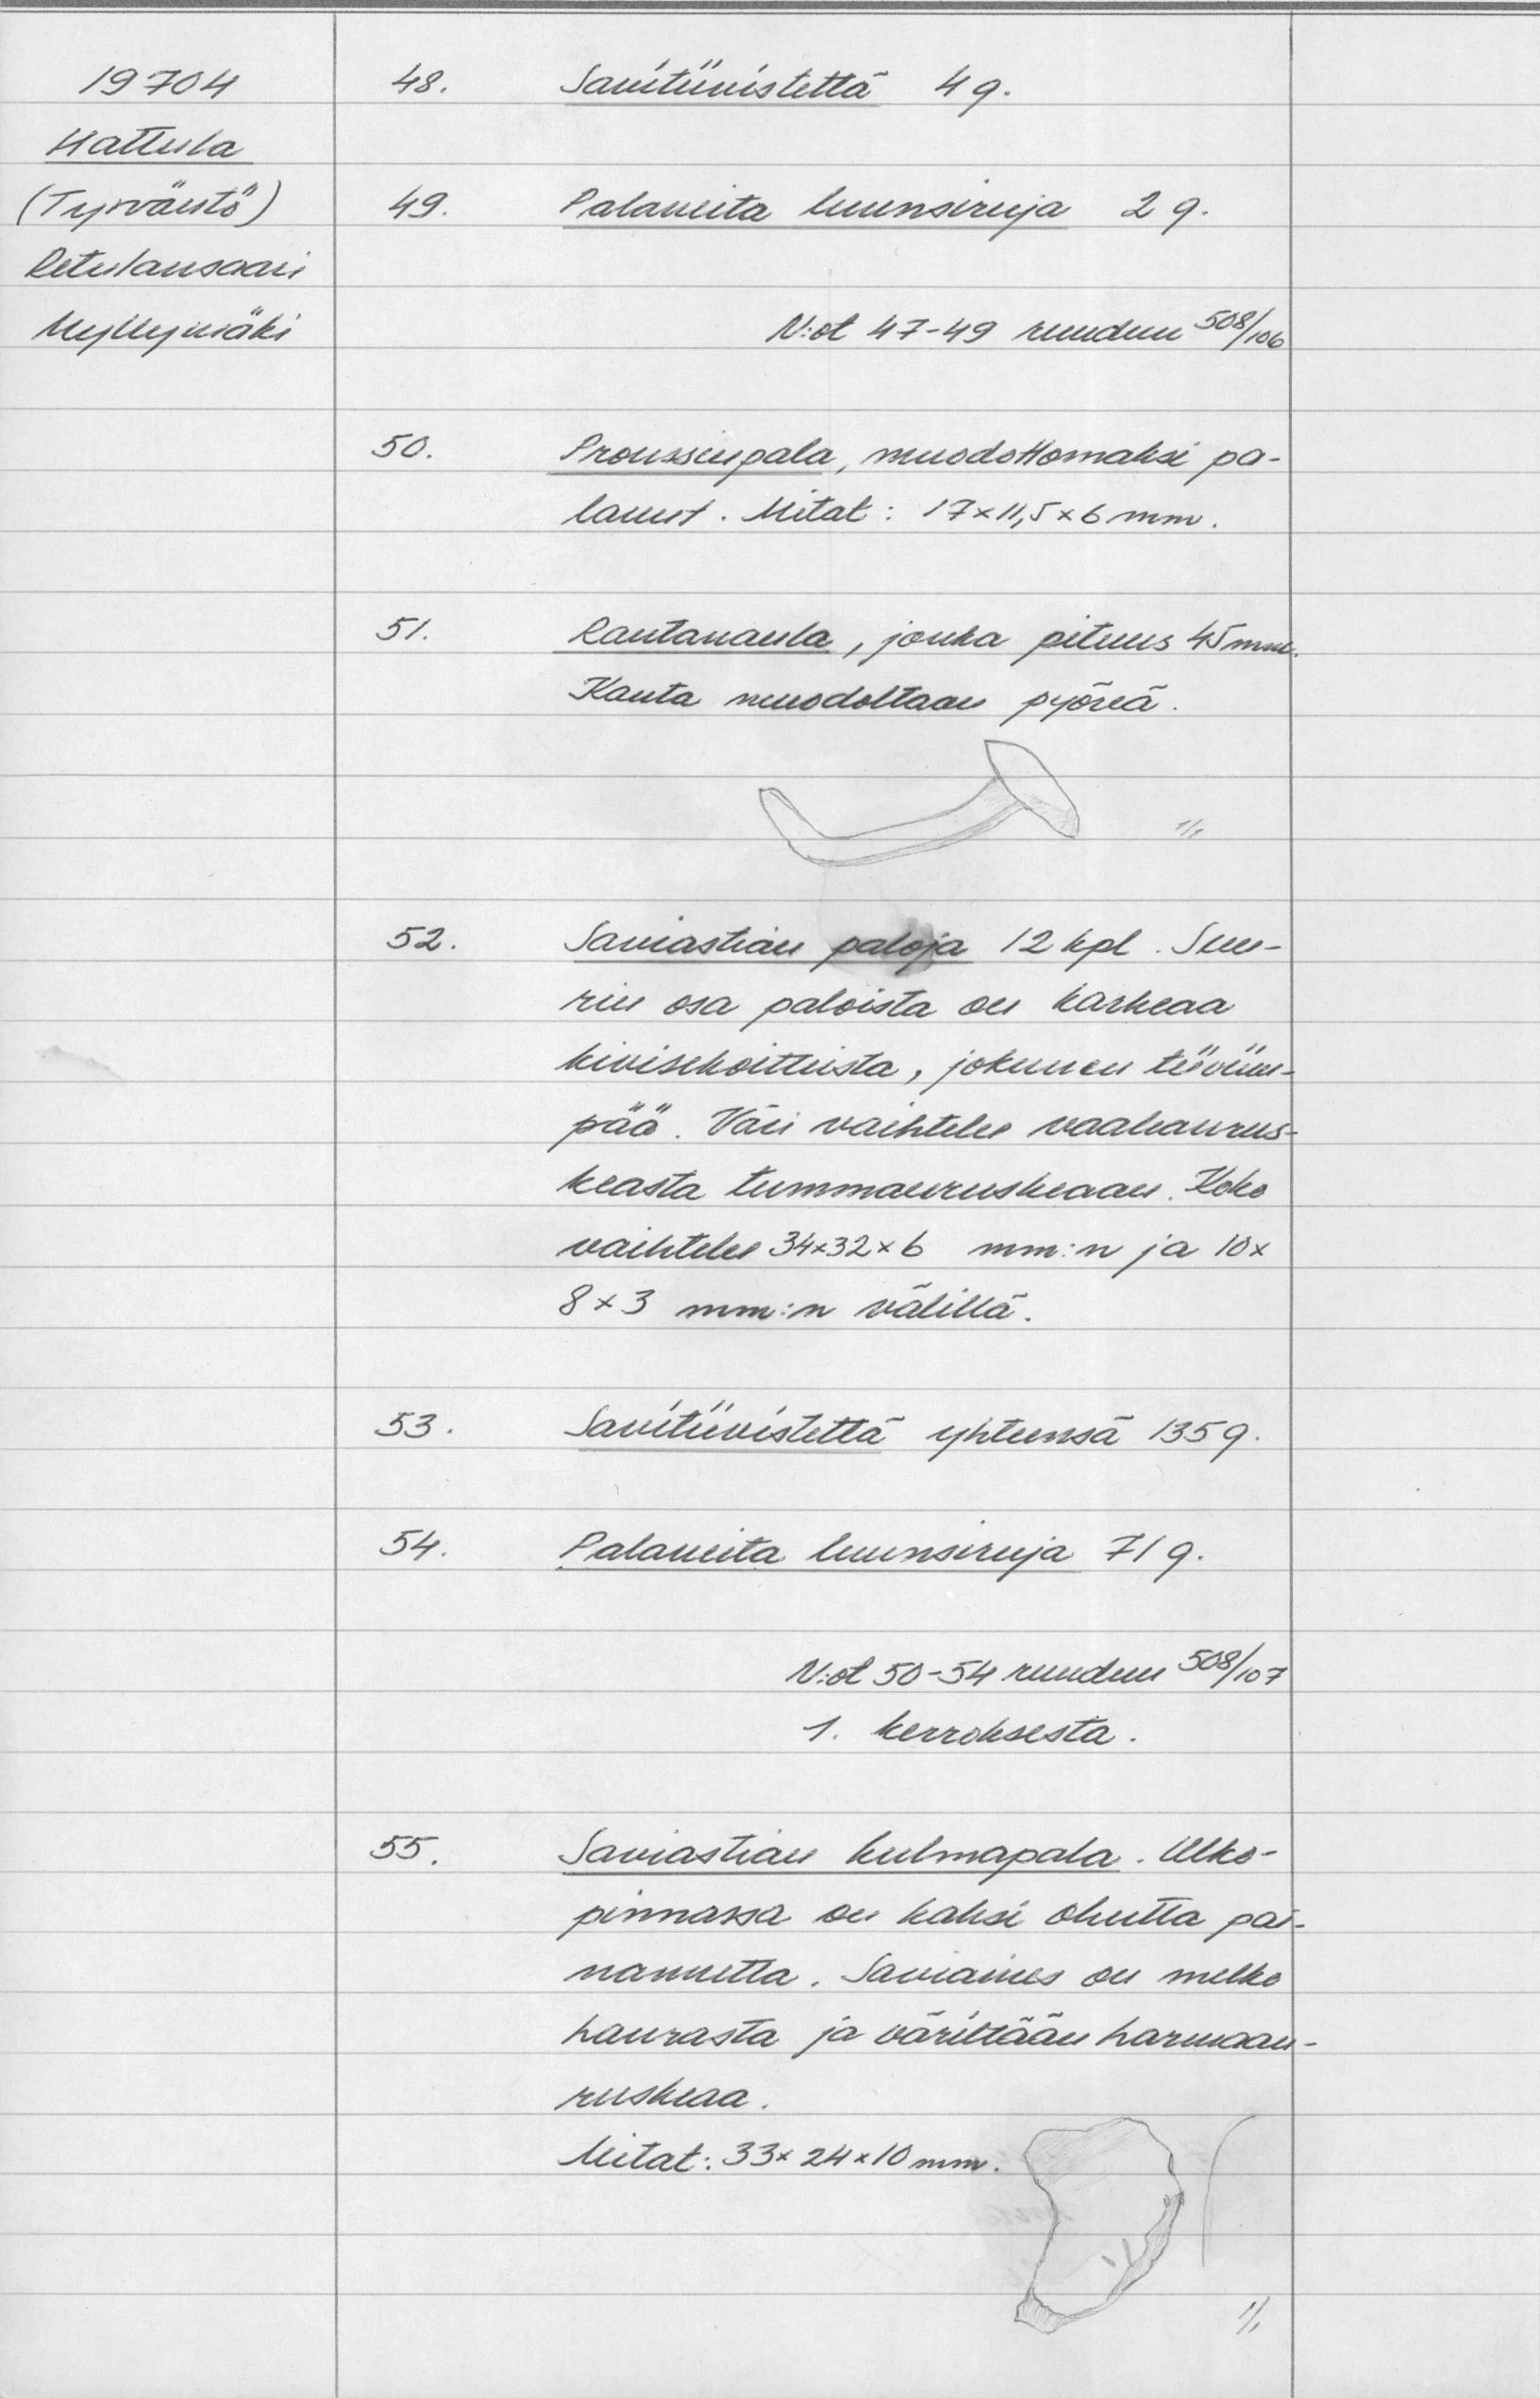 19704
Hattula
(Tyrväntö)
Retulansaari
Myllymäki
48. Savitiivistettä 4 g.
49. Palaneita luunsiruja 2 g.
N:ot 47-49 ruudun 508/106
50. Pronssinpala, muodottomaksi pa-
lanut. Mitat: 17×11,5×6 mm.
51. Rautanaula, jonka pituus 45 mm.
Kanta muodoltaan pyöreä.
1/1
52. Saviastian paloja 12 kpl. Suu-
rin osa paloista on karkeaa
kivisekoitteista, jokunen tiiviim-
pää. Väri vaihtelee vaaleanrus-
keasta tummanruskeaan. Koko
vaihtelee 34×32×6 mm:n ja 10×
8×3 mm:n välillä.
53. Savitiivistettä yhteensä 135 g.
54. Palaneita luunsiruja 71 g.
N:ot 50-54 ruudun 508/107
1. kerroksesta.
55. Saviastian kulmapala. Ulko-
pinnassa on kaksi ohutta pai-
nannetta. Saviaines on melko
haurasta ja väriltään harmaan-
ruskeaa.
Mitat: 33×24×10 mm.
1/1